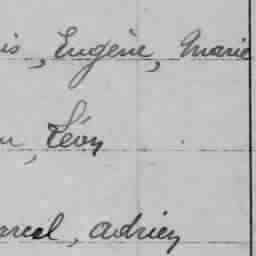 is, Eugène, Marie
, Léon
arcel, Adrien